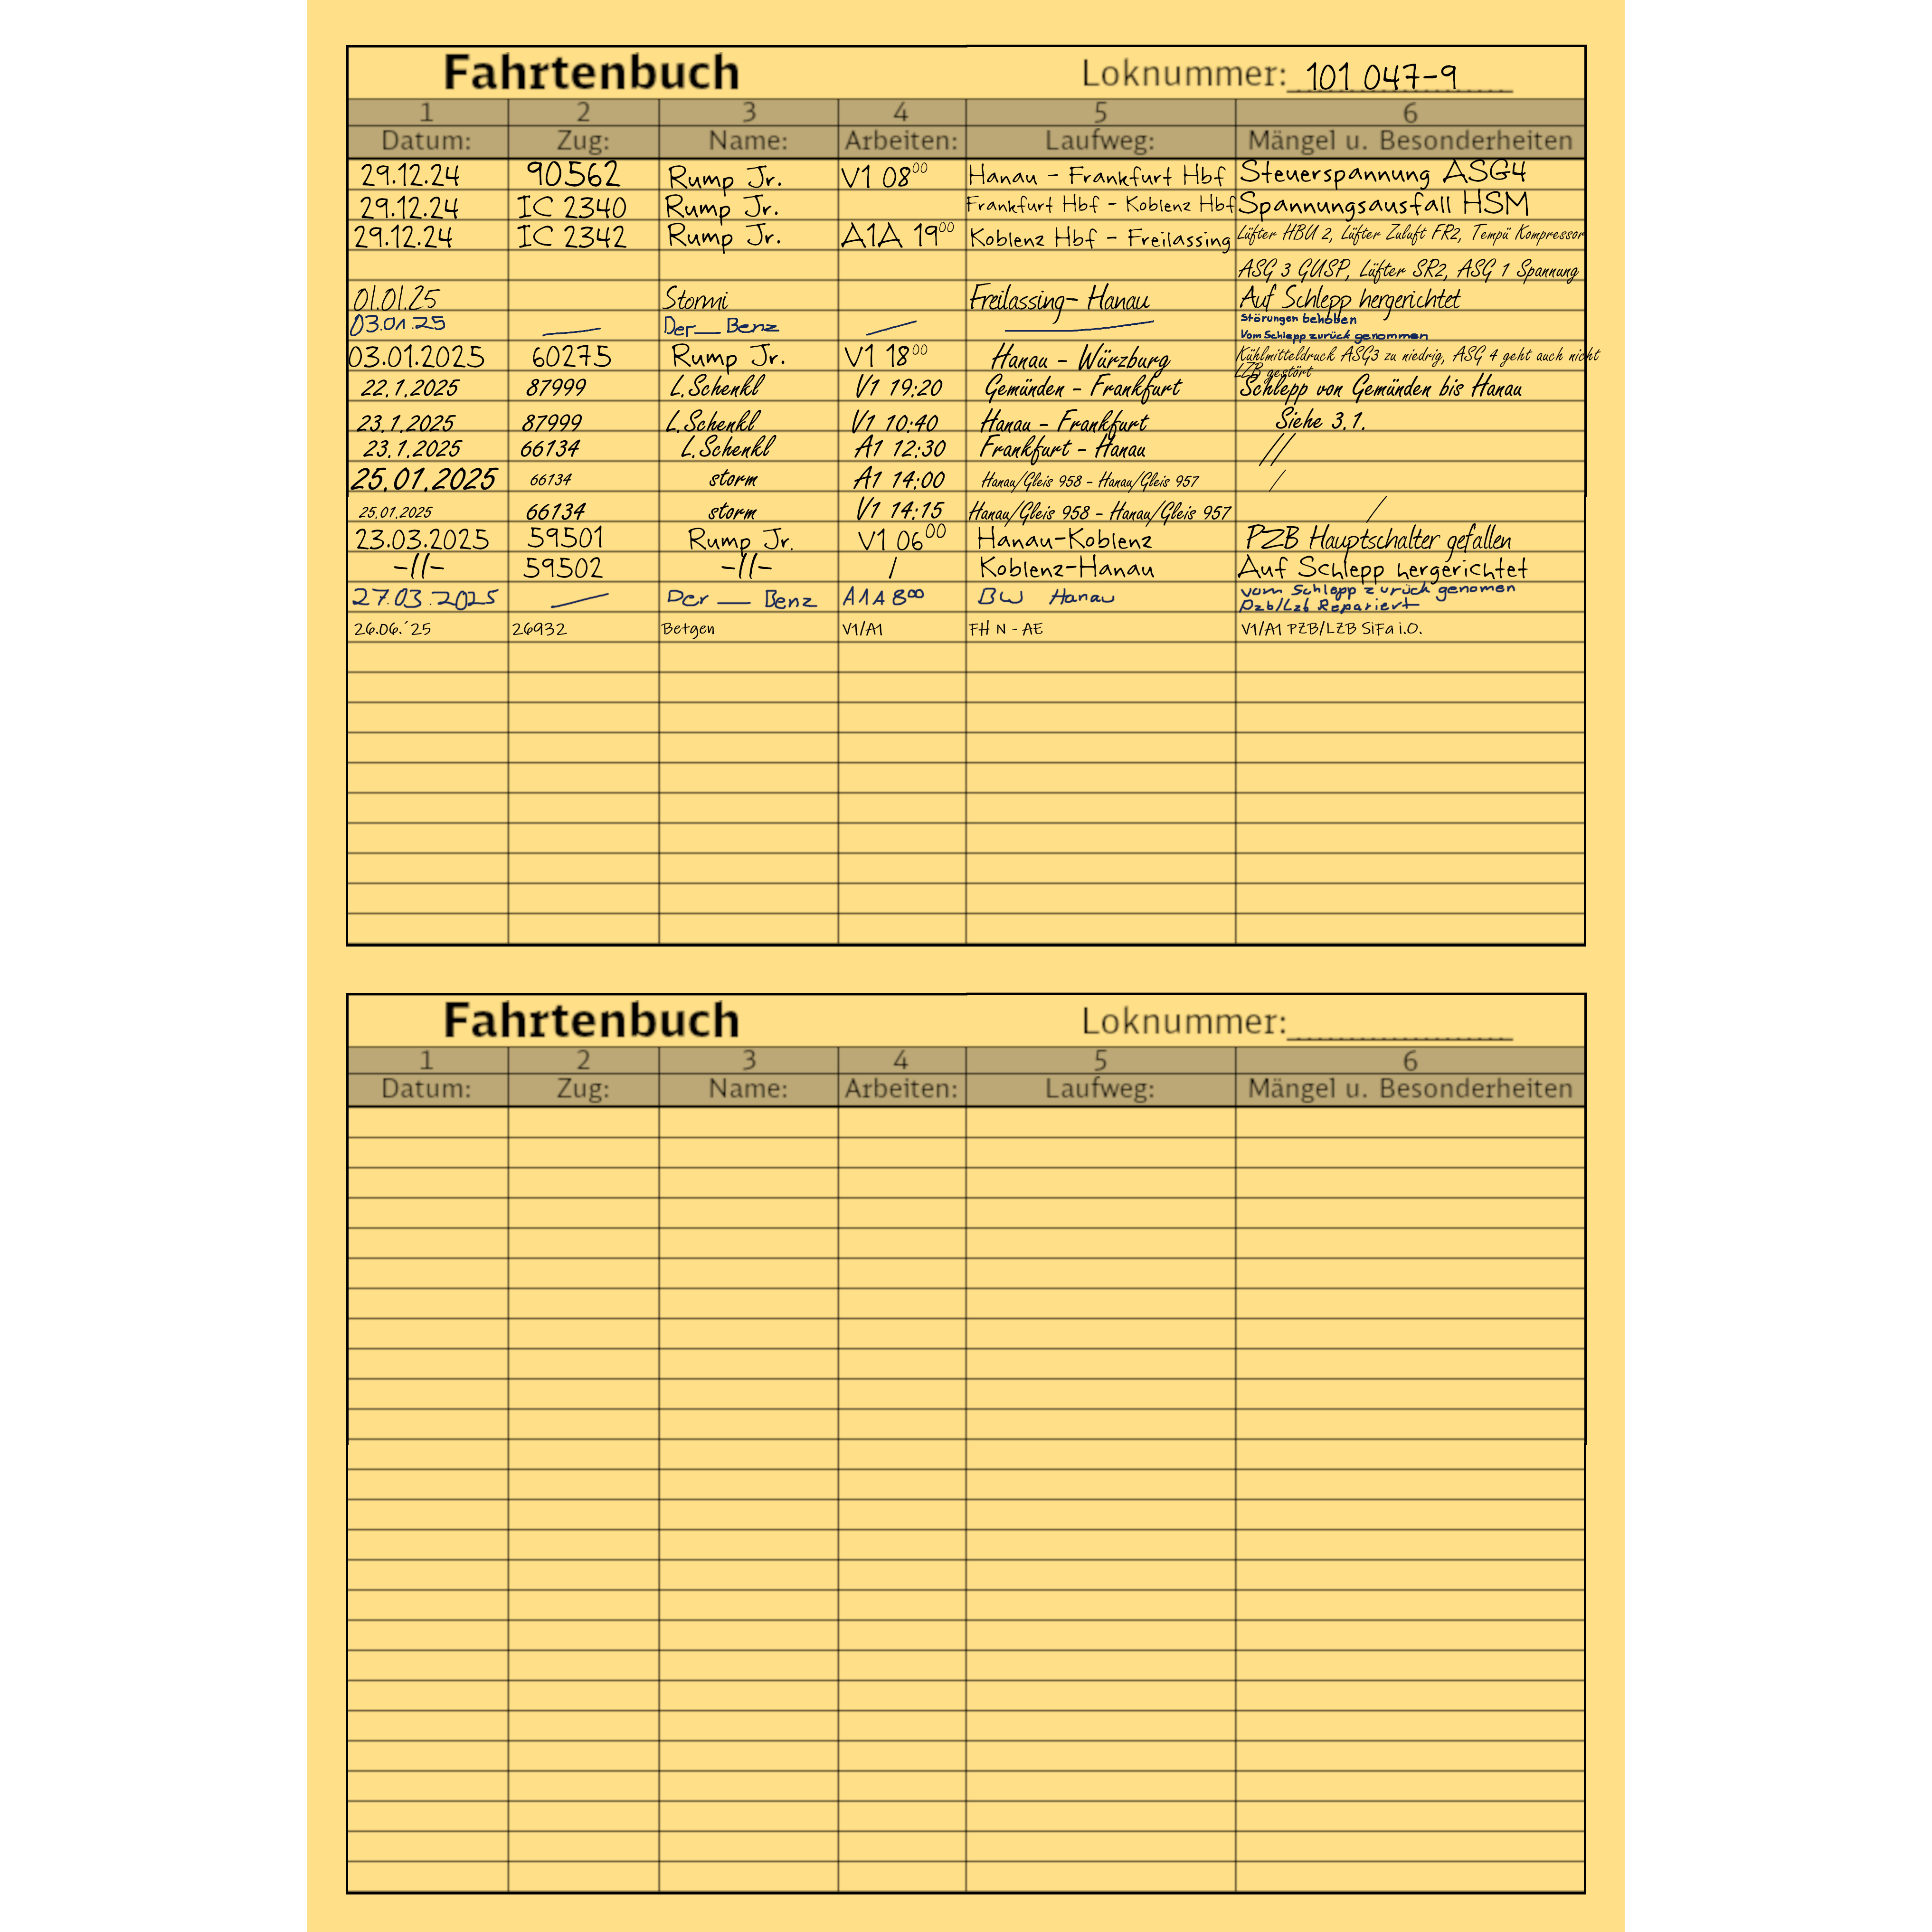 Fahrtenbuch Loknummer: 101 047-9
1 2 3 4 5 6
Datum: Zug: Name: Arbeiten: Laufweg: Mängel u. Besonderheiten
29.12.24 90562 Rump Jr. V1 08⁰⁰ Hanau - Frankfurt Hbf Steuerspannung ASG4
29.12.24 IC 2340 Rump Jr. Frankfurt Hbf - Koblenz Hbf Spannungsausfall HSM
29.12.24 IC 2342 Rump Jr. A1A 19⁰⁰ Koblenz Hbf - Freilassing Lüfter HBU 2, Lüfter Zuluft FR2, Tempü Kompressor
ASG 3 GUSP, Lüfter SR2, ASG 1 Spannung
01.01.25 Stormi Freilassing- Hanau Auf Schlepp hergerichtet
03.01.25 — Der__Benz — — Störungen behoben
Vom Schlepp zurück genommen
03.01.2025 60275 Rump Jr. V1 18⁰⁰ Hanau - Würzburg Kühlmitteldruck ASG3 zu niedrig, ASG 4 geht auch nicht
LZB gestört
22.1.2025 87999 L.Schenkl V1 19:20 Gemünden - Frankfurt Schlepp von Gemünden bis Hanau
23.1.2025 87999 L.Schenkl V1 10:40 Hanau - Frankfurt Siehe 3.1.
23.1.2025 66134 L.Schenkl A1 12:30 Frankfurt - Hanau //
25.01.2025 66134 storm A1 14:00 Hanau/Gleis 958 - Hanau/Gleis 957 /
25.01.2025 66134 storm V1 14:15 Hanau/Gleis 958 - Hanau/Gleis 957 /
23.03.2025 59501 Rump Jr. V1 06⁰⁰ Hanau-Koblenz PZB Hauptschalter gefallen
-//- 59502 -//- / Koblenz-Hanau Auf Schlepp hergerichtet
27.03.2025 — Der — Benz A1A 8⁰⁰ BW Hanau vom Schlepp zurück genomen
Pzb/Lzb Repariert
26.06.´25 26932 Betgen V1/A1 FH N - AE V1/A1 PZB/LZB SiFa i.O.
Fahrtenbuch Loknummer:
1 2 3 4 5 6
Datum: Zug: Name: Arbeiten: Laufweg: Mängel u. Besonderheiten